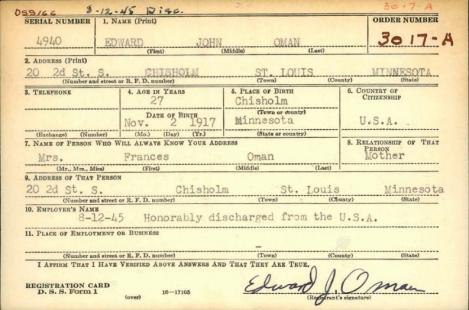 8-12-45 Disc. 30 17-A
SERIAL NUMBER 1. NAME (Print) ORDER NUMBER
4940 EDWARD JOHN OMAN 3017-A
(First) (Middle) (Last)
2. ADDRESS (Print)
20 2d St. S. CHISHOLM ST. LOUIS MINNESOTA
(Number and street or R. F. D. number) (Town) (County) (State)
3. TELEPHONE 4. AGE IN YEARS 5. PLACE OF BIRTH 6. COUNTRY OF CITIZENSHIP
27 Chisholm
(Town or county)
DATE OF BIRTH
Nov. 2 1917 Minnesota U.S.A.
(Exchange) (Number) (Mo.) (Day) (Yr.) (State or country)
7. NAME OF PERSON WHO WILL ALWAYS KNOW YOUR ADDRESS 8. RELATIONSHIP OF THAT PERSON
Mrs. Frances Oman Mother
(Mr., Mrs., Miss) (First) (Middle) (Last)
9. ADDRESS OF THAT PERSON
20 2d St. S. Chisholm St. Louis Minnesota
(Number and street or R. F. D. number) (Town) (County) (State)
10. EMPLOYER'S NAME
8-12-45 Honorably discharged from the U.S.A.
11. PLACE OF EMPLOYMENT OR BUSINESS
(Number and street or R. F. D. number) (Town) (County) (State)
I AFFIRM THAT I HAVE VERIFIED ABOVE ANSWERS AND THAT THEY ARE TRUE.
REGISTRATION CARD
D. S. S. Form 1 (over) 16-17105 Edward J. Oman
(Registrant's signature)